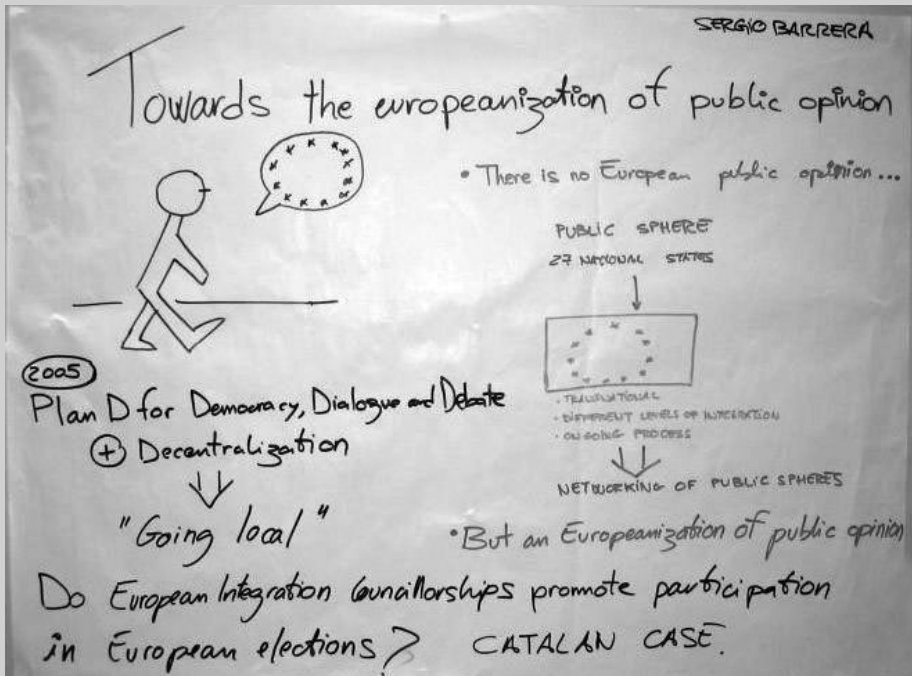 SERGIO BARRERA
Towards the europeanization of public opinion
• There is no European public opinion...
PUBLIC SPHERE
27 NACIONAL STATES
• TRANSNATIONAL
• DIFFERENT LEVELS OF INTEGRATION
• ON GOING PROCESS
NETWORKING OF PUBLIC SPHERES
• But an Europeanization of public opinion
2005
Plan D for Democracy, Dialogue and Debate
+ Decentralization
"Going local"
Do European Integration Councillorships promote participation
in European elections? CATALAN CASE.